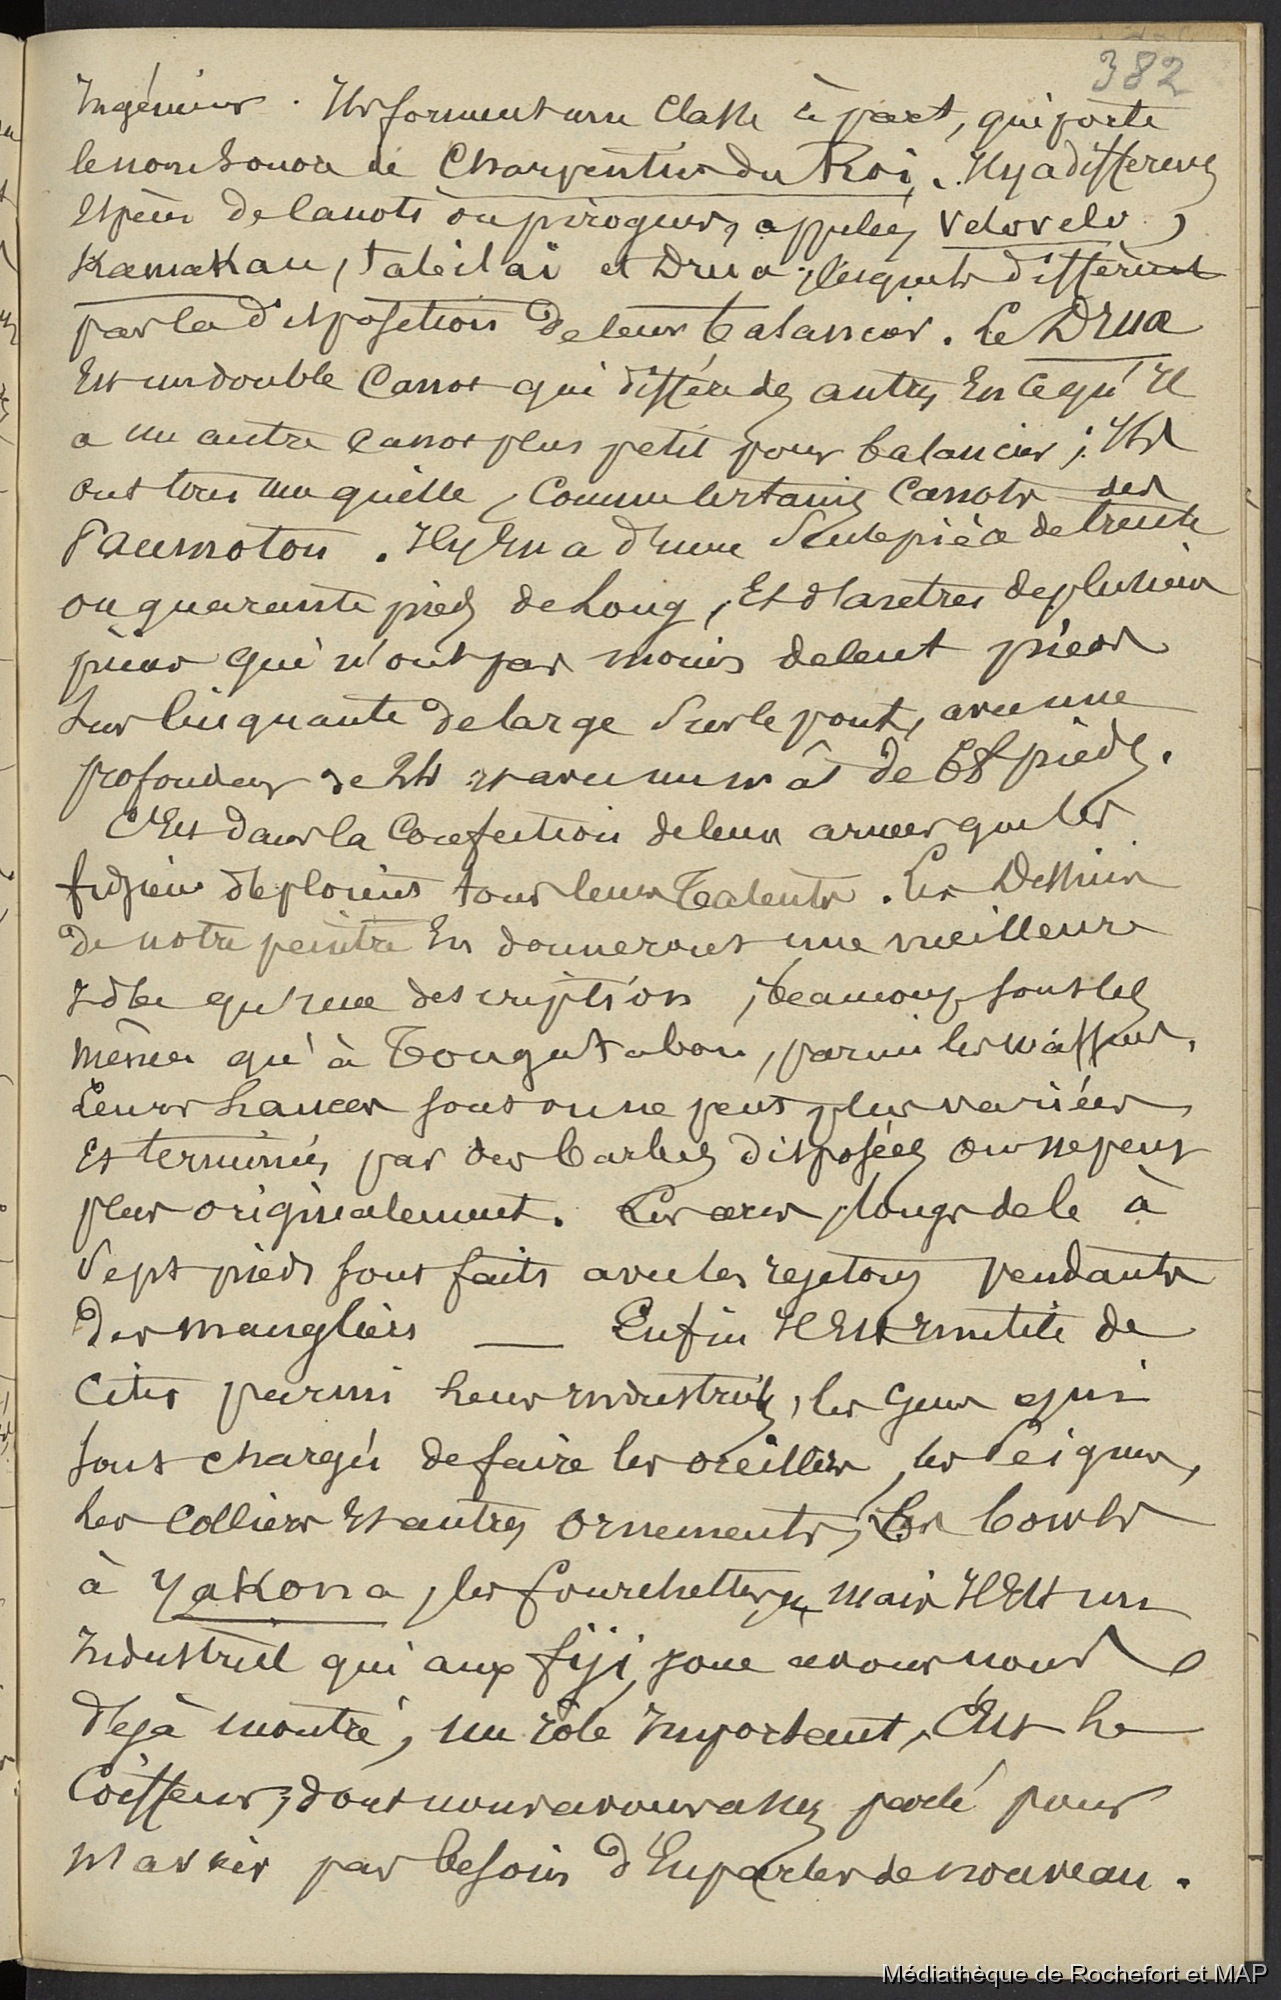 382
Ingénieurs. Ils forment une Classe à part, qui porte
le nom sonore de Charpentiers du Roi. Il y a différentes
Espèces de canots ou pirogues, appelées velovelo,
Kamakau, tabilaï et Drua, lesquels diffèrent
par la disposition de leur balancier. Le Drua
Est un double Canot qui diffère des autres En ce qu'Il
a un autre canot plus petit pour balancier; Ils
ont tous une quille, Comme certains Canots des
Paumotou. Il y En a d'une Seule pièce de trente
ou quarante pieds de Long, Et d'autres de plusieurs
pièces qui n'ont pas moins de cent pieds
Sur Cinquante de large Sur le pont, avec une
profondeur de 24 et avec un mât de 68 pieds.
C'Est dans la Confection de leurs armes que les
fidjiens déploient tous leurs talents. Les Dessins
De notre peintre En donneront une meilleure
Idée qu'une description, beaucoup sont les
mêmes qu'à Tongatabou, parmi les
Leurs Lances sont on ne peut plus variées
Et terminées par des barbes disposées on ne peut
plus originalement. Les arcs, longs de 6 à
Sept pieds sont faits avec les rejetons pendants
Des mangliers — Enfin Il Est Inutile de
Citer parmi Leurs Industriels, les gens qui
sont chargés de faire les oreillers, les Peignes,
Les Colliers Et autres Ornements, Les bowls
à Yakona, les fourchettes, mais Il Est un
Industriel qui aux fiji, joue avons nous
déjà montré, un rôle Important, C'Est Le
Coiffeur, dont nous avons assez parlé pour
n'avoir pas besoin d'En parler de nouveau.
Médiathèque de Rochefort et MAP